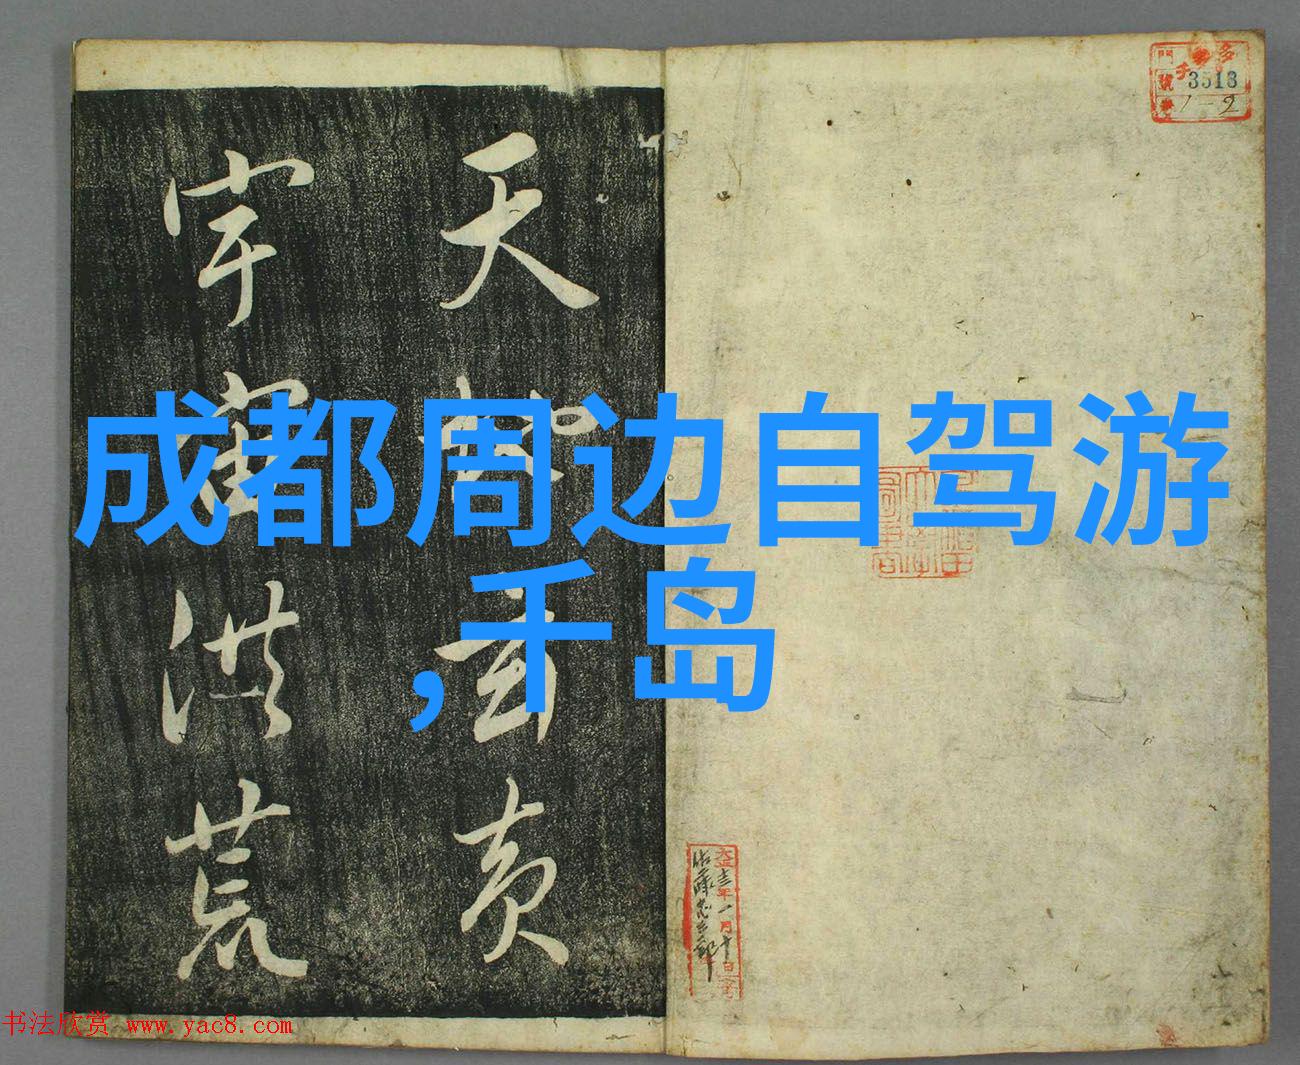 成都周边自驾游
,千岛
天地玄黄
宇宙洪荒
3513
1-2
书法欣赏 www.yac8.com